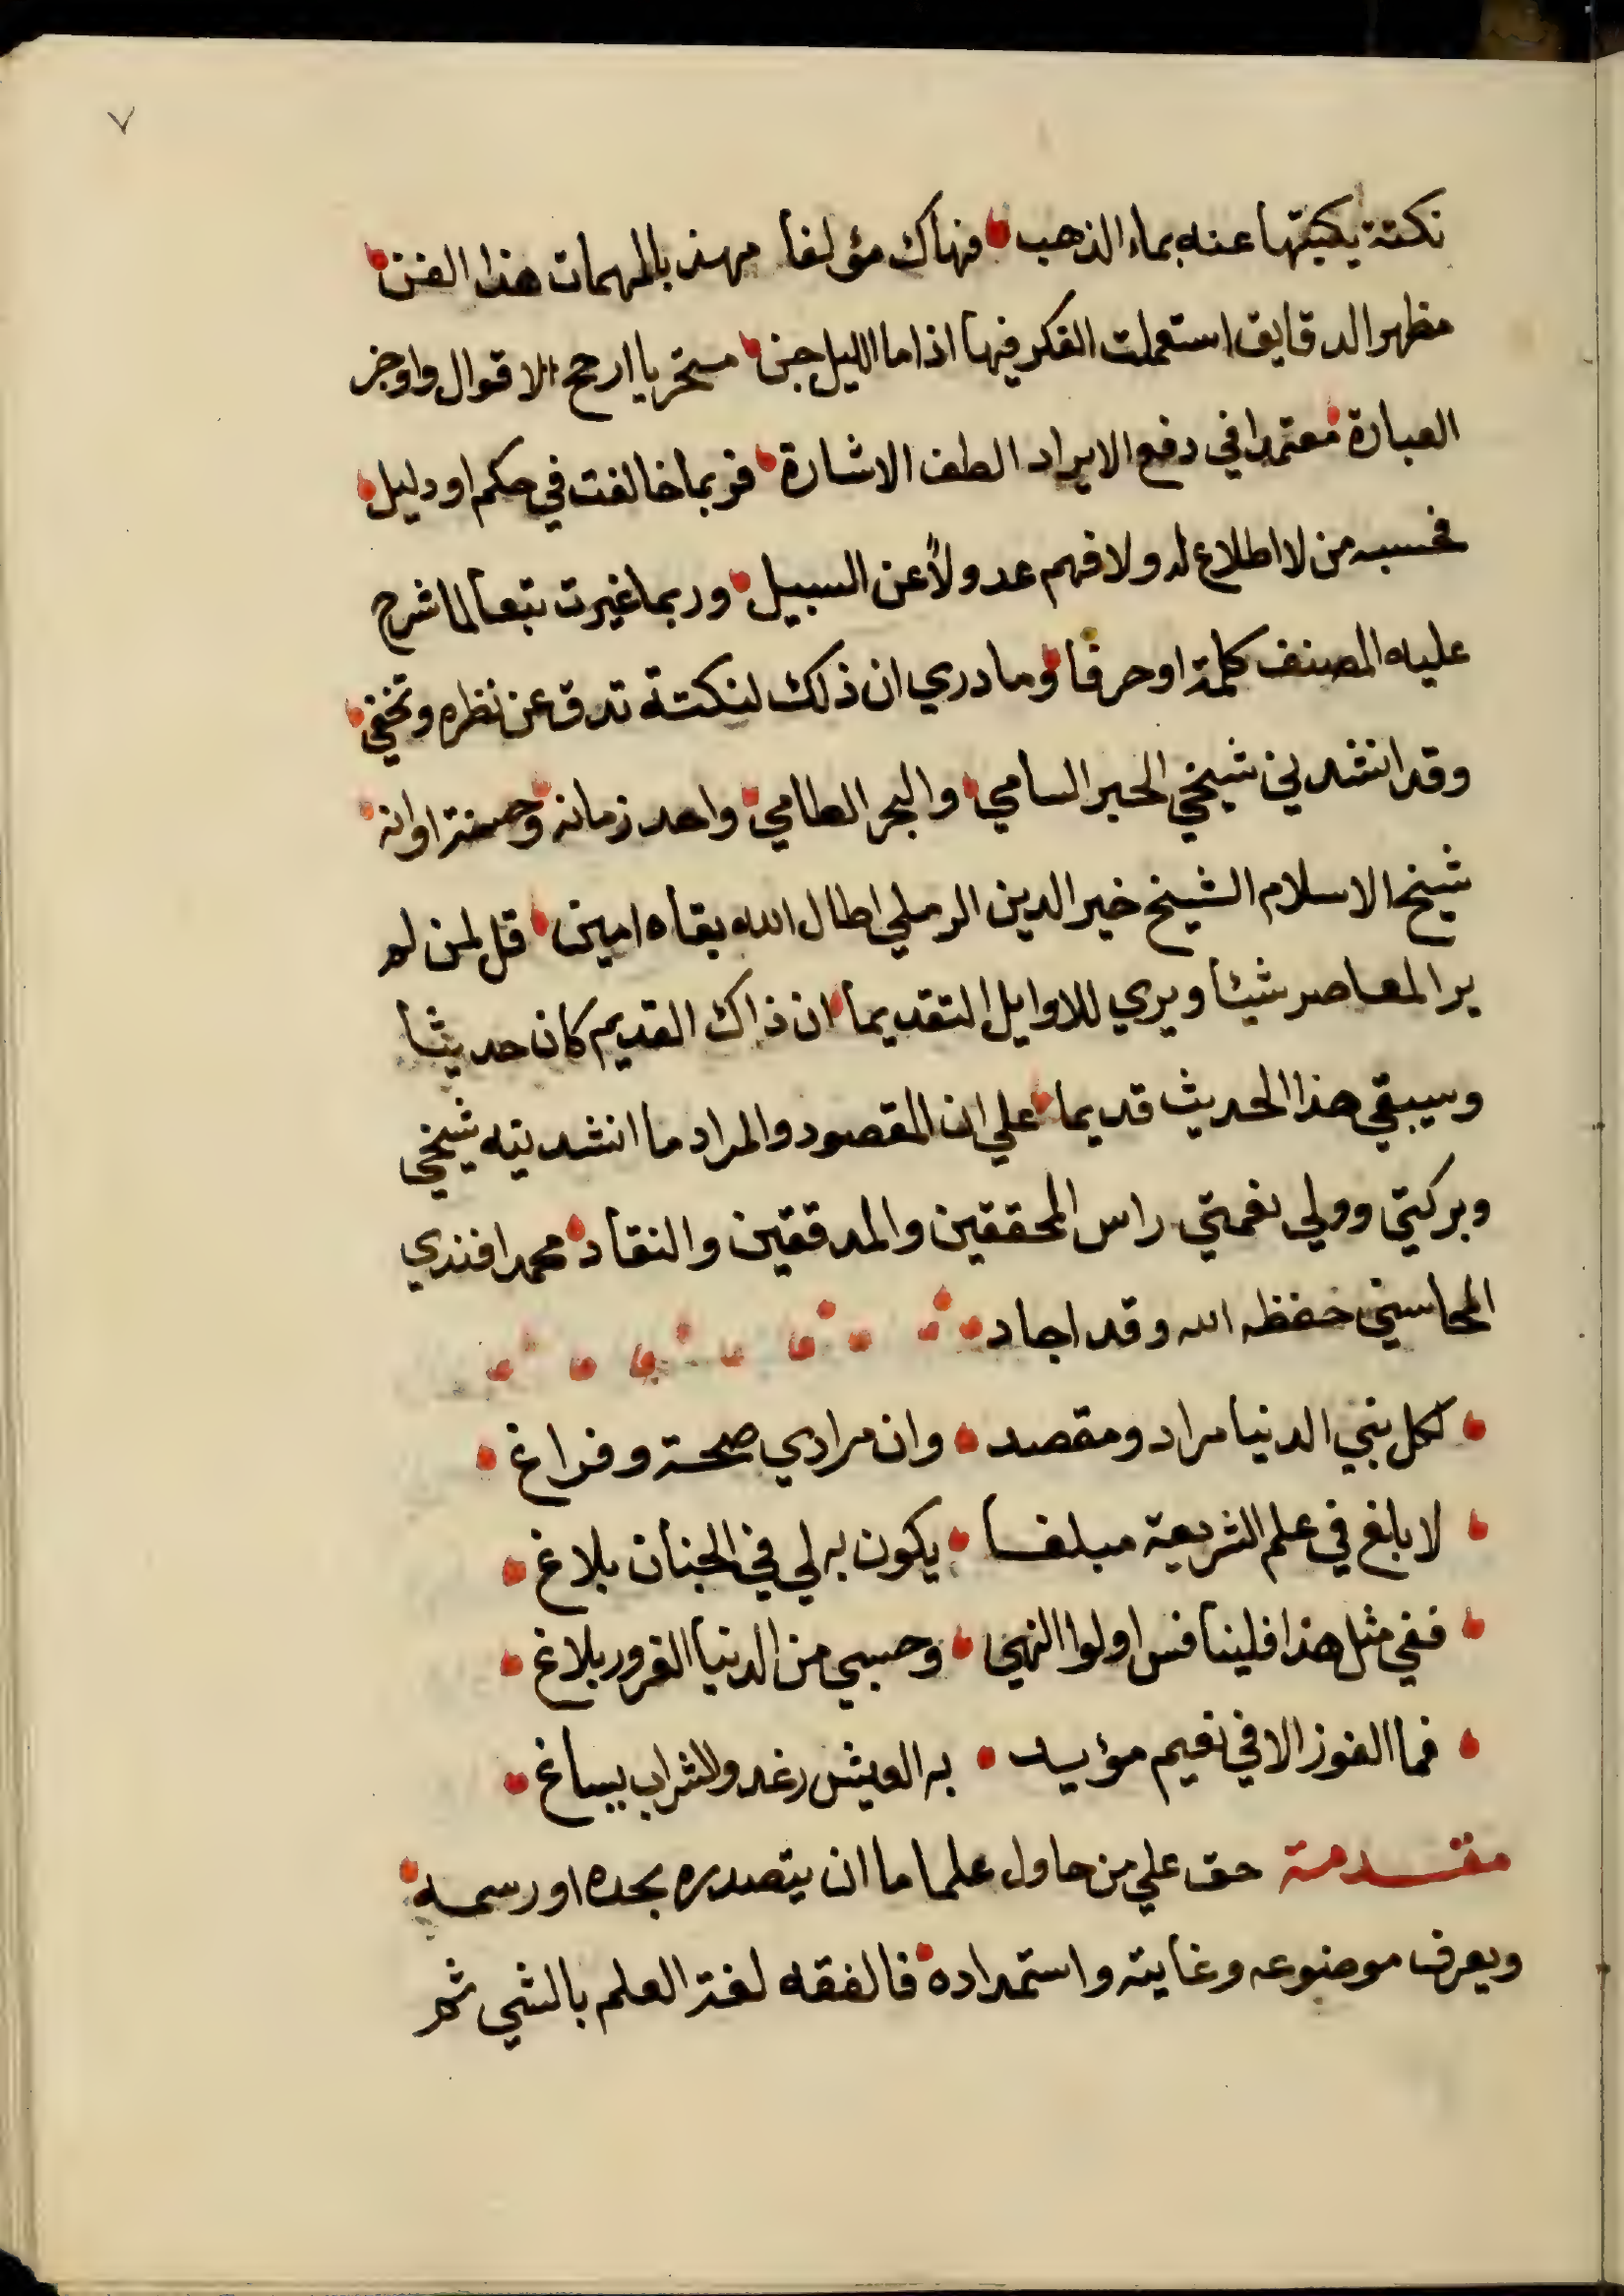 ٧
نكتة يكبتها عنه بماء الذهب فهاك مؤلفا مهذبا لمهمات هذا الفن
مظهر الدقايق استعملت الفكر فيها اذا ما الليل جن متحريا ارجح الاقوال واوجز
العبارة معتمدا في دفع الايراد الطف الاشارة فربما خالفت في حكم او دليل
فحسبه من لا اطلاع له ولا فهم عدولاً عن السبيل وربما غيرت تبعا لما شرح
عليه المصنف كلمة او حرفا وما دري ان ذلك لنكتة تدق عن نظره وتخفي
وقد انشدني شيخي الحبر السامي والبحر الطامي واحد زمانه وحسنة اوانه
شيخ الاسلام الشيخ خير الدين الرملي اطال الله بقاه امين قل لمن لم
ير المعاصر شيئا ويري للاوايل التقديما ان ذاك القديم كان حديثا
وسيبقي هذا الحديث قديما علي ان المقصود والمراد ما انشدنيه شيخي
وبركتي وولي نعمتي راس المحققين والمدققين والنقاد محمد افندي
المحاسني حفظه الله وقد اجاد
لكل بني الدنيا مراد ومقصد وان مرادي صحة وفراغ
لابلغ في علم الشريعة مبلغا يكون به لي في الجنان بلاغ
ففي مثل هذا فلينافس اولوا النهي وحسبي من الدنيا الغرور بلاغ
فما الفوز الا في نعيم مؤيد به العيش رغد والشراب يساغ
مقدمة حق علي من حاول علما ما ان يتصدره بحده او رسمه
ويعرف موضوعه وغايته واستمداده فالفقه لغة العلم بالشي ثم